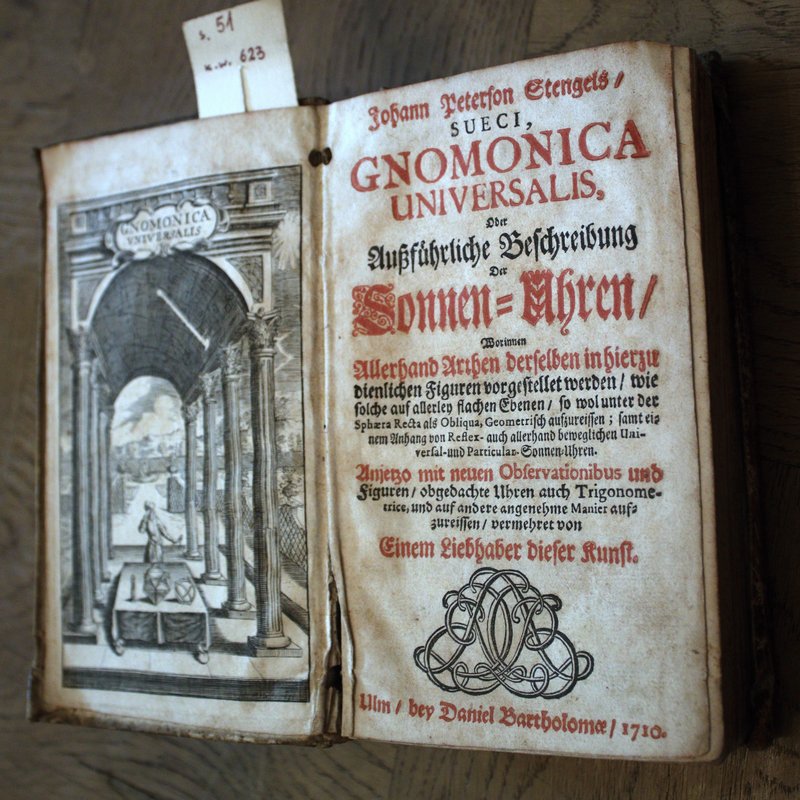 s. 51
u.w. 623
GNOMONICA
VNIVERSALIS
Johann Peterson Stengels/
SUECI,
GNOMONICA
UNIVERSALIS,
Oder
Außführliche Beschreibung
Der
Sonnen-Uhren/
Worinnen
Allerhand Arthen derselben in hierzu
dienlichen Figuren vorgestellet werden/ wie
solche auf allerley flachen Ebenen/ so wol unter der
Sphæra Recta als Obliqua, Geometrisch aufzureissen; samt ei-
nem Anhang von Reflex- auch allerhand beweglichen Uni-
versal-und Particular-Sonnen-Uhren.
Anjetzo mit neuen Observationibus und
Figuren/ obgedachte Uhren auch Trigonome-
trice, und auf andere angenehme Manier auf-
zureissen/ vermehret von
Einem Liebhaber dieser Kunst.
Ulm/ bey Daniel Bartholomæ/ 1710.